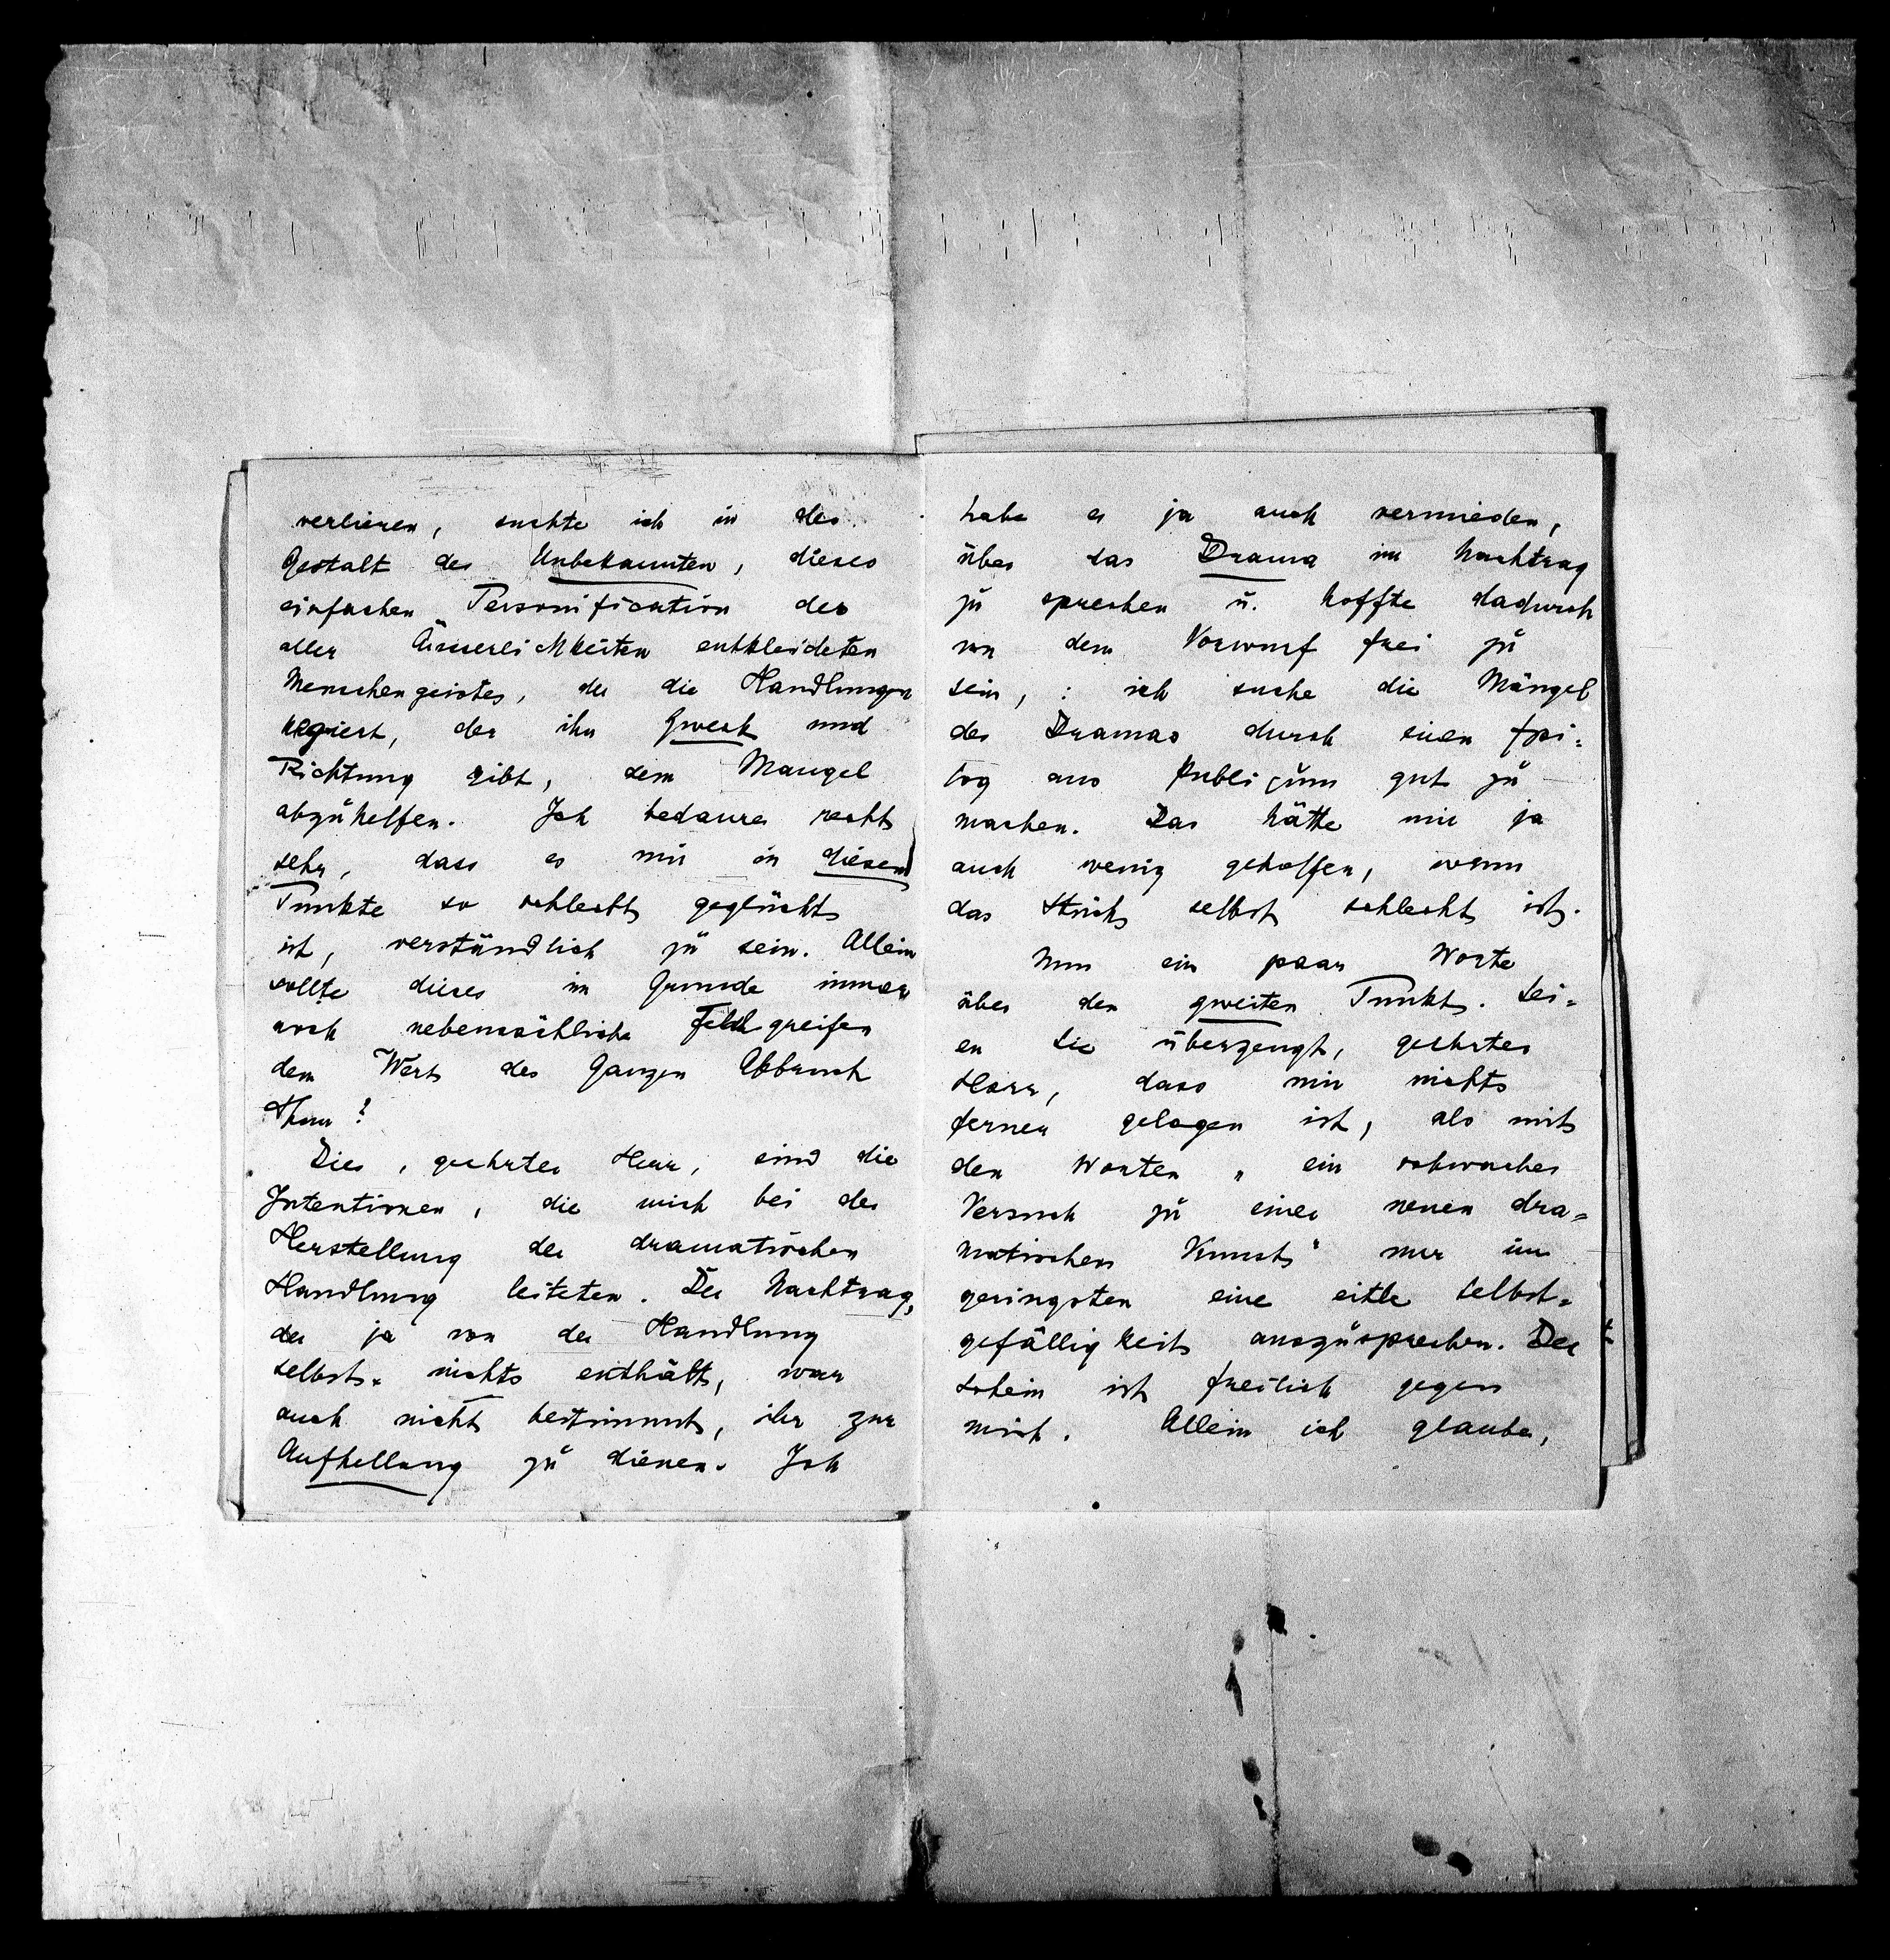 verlieren, suchte ich in der
Gestalt des Unbekannten, dieses
einfachen Personification des
aller Äusserlichkeiten entkleideten
Menschengeistes, der die Handlungen
regiert, der ihn Zweck und
Richtung gibt, dem Mangel
abzuhelfen. Ich bedaure recht
sehr, dass es mir in diesem
Punkte so schlecht geglückt
ist, verständlich zu sein. Allein
sollte dieses im Grunde immer
noch nebensächliche Fehlgreifen
dem Wert des Ganzen Abbruch
thun?
Dies, geehrter Herr, sind die
Intentionen, die mich bei der
Herstellung der dramatischen
Handlung leiteten. Der Nachtrag,
der ja von der Handlung
selbst nichts enthält, war
auch nicht bestimmt, ihr zur
Aufhellung zu dienen. Ich
habe es ja auch vermieden,
über das Drama im Nachtrag
zu sprechen u. hoffte dadurch
von dem Vorwurf frei zu
sein, : ich suche die Mängel
des Dramas durch einen Epi=
log ans Publicum gut zu
machen. Das hätte mir ja
auch wenig geholfen, wenn
das Stück selbst schlecht ist.
Nun ein paar Worte
über den zweiten Punkt. Sei=
en Sie überzeugt, geehrter
Herr, dass mir nichts
ferner gelegen ist, als mit
den Worten „ ein schwacher
Versuch zu einer neuen dra=
matischen Kunst" nur im
geringsten eine eitle Selbst=
gefälligkeit auszusprechen. Der
Schein ist freilich gegen
mich. Allein ich glaube,